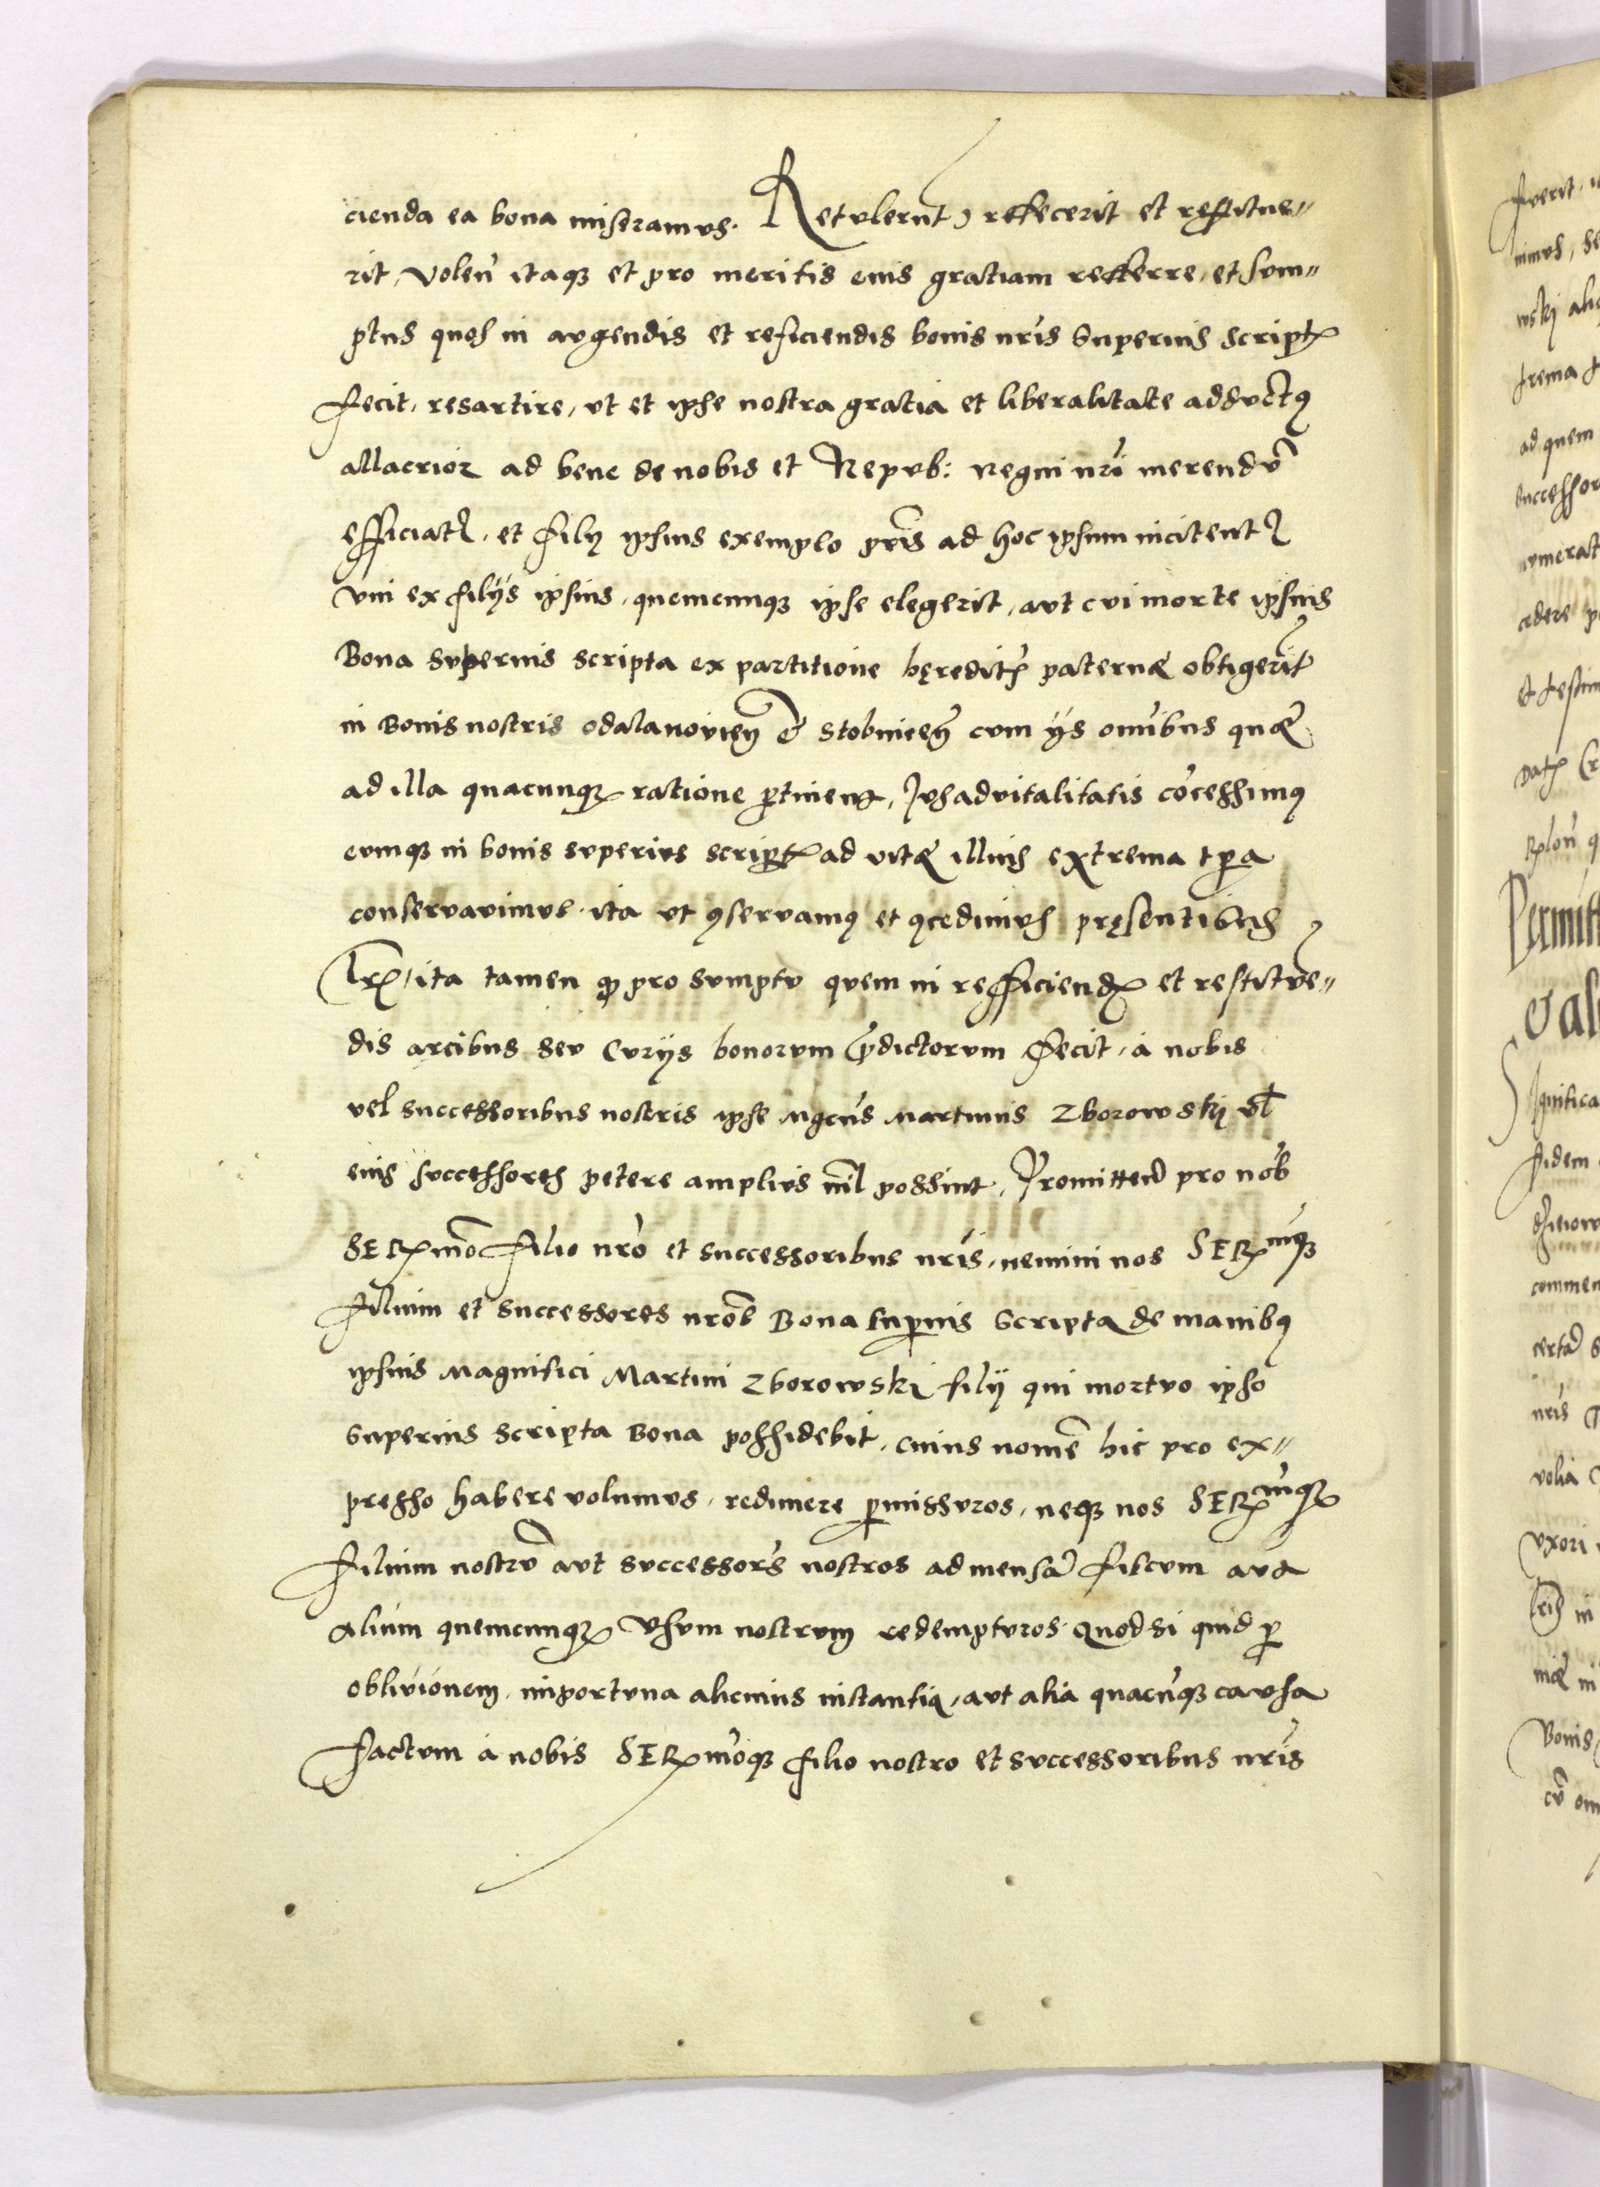 cienda ea bona miseramus. Retulerūt, refecerit et restitue=
rit, Volen̄ itaq₃ et pro meritis eius gratiam refferre, et sum=
ptus quos in augendis et reficiendis bonis nr̄is Superius scriptꝭ
fecit, resartire, ut et ipse nostra gratia et liberalitate adductꝰ
allacrior ad bene de nobis et Repub: Regni nr̄i merendū
efficiatr̃, et filÿ ipsius exemplo pr̄is ad hoc ipsum incitentr̃
Vni ex filijs ipsius, quemcunq₃ ipse elegerit, aut cui morte ipsius
Bona superius scripta ex partitione hęreditꝭ paternæ obtigerit
in Bonis nostris odalanovien̄ et stobnicen̄ cum ijs omībus quæ
ad illa quacunq₃ ratione ꝑtinent, Jus aduitalitatis cōcessimꝰ
eumq₃ in bonis superius scriptꝭ ad vitæ illius extrema tꝑa
conseruauimus. ita ut ꝯseruamꝰ et ꝯcedimus pręsentibus
lr̄ꝭ, ita tamen ꝙ pro sumptu quem in refficiendꝭ et restitue=
dis arcibus seu Curijs bonorum p̄dictorum fecit, à nobis
vel successoribus nostris ipse Mgcūs Martinus Zborowskij vl̄
eius successores petere amplius nīl possint, Promitten̄ pro nob
SERmō filio nr̄o et successoribus nr̄is, nemini nos SERmūq₃
filium et successores nr̄os Bona suꝑius Scripta de manibꝰ
ipsius Magnifici Martini Zborowski filij qui mortuo ipso
Superius Scripta Bona possidebit, cuius nomē hic pro ex=
presso habere volumus, redimere ꝑmissuros, neq₃ nos SERmūq₃
filium nostrū aut successor̄s nostros ad mensā fiscum aut
alium quemcunq₃ Vsum nostrum redempturos Quod si quid ꝑ
obliuionem, importuna alicuius instantia, aut alia quacūq₃ causa
factum à nobis SERmōq₃ filio nostro et successoribus nr̄is